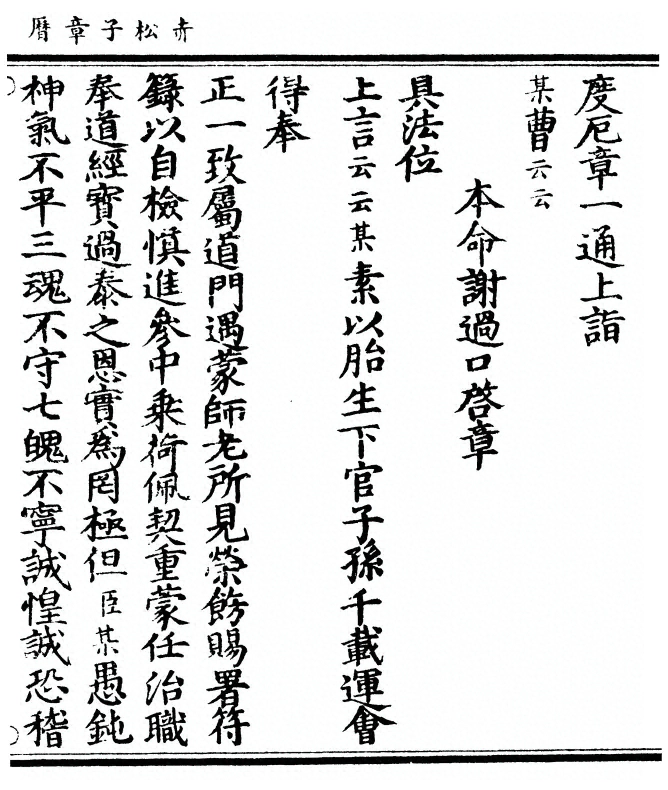 赤松子章曆
度厄章一通上詣
某曹云云
本命謝過口啓章
具法位
上言云云某素以胎生下官子孫千載運會
得奉
正一致屬道門遇蒙師老所見榮飭賜署符
籙以自檢愼進參中乗荷佩契重蒙任治職
奉道經寶過泰之恩實爲罔極但臣某愚鈍
神氣不平三魂不守七魄不寧誠惶誠恐稽